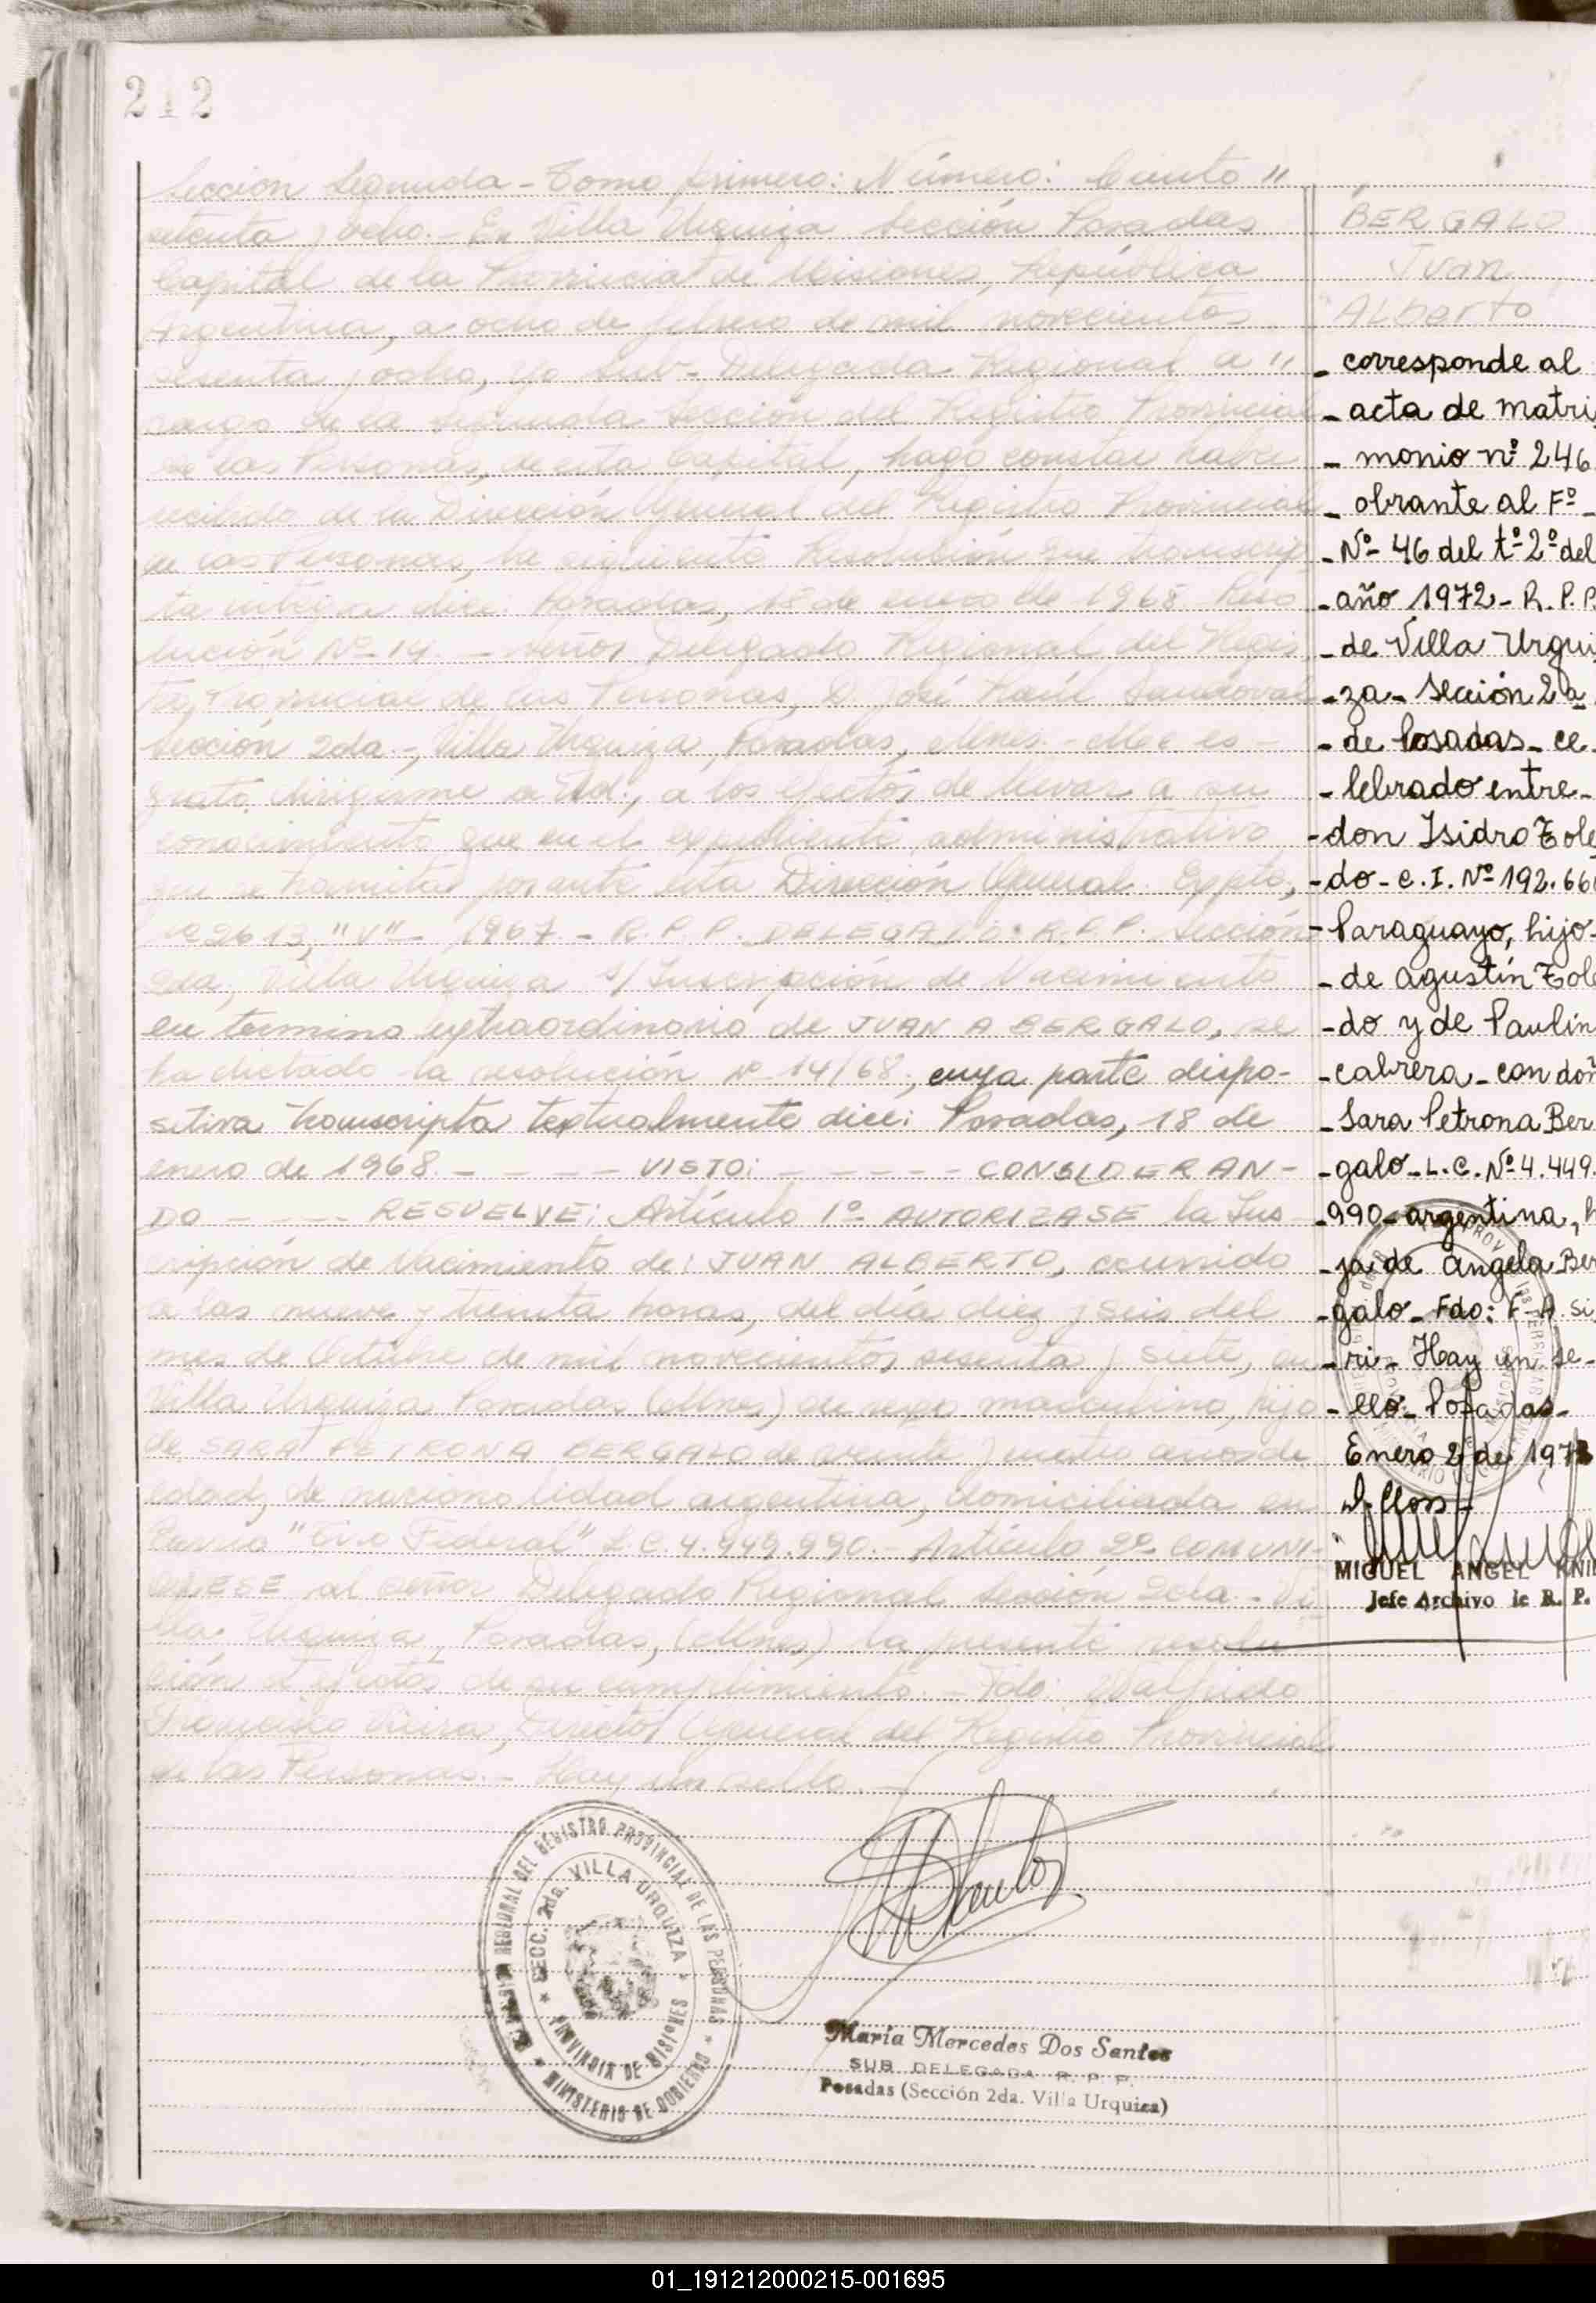 212
Sección Segunda - Tomo primero: Número: Ciento "
setenta y ocho. - En Villa Urquiza Sección Posadas
Capital de la Provincia de Misiones, República
Argentina, a ocho de febrero de mil novecientos
sesenta y ocho, yo Sub-Delegada Regional a "
cargo de la segunda Sección del Registro Provincial
de las Personas, de esta Capital, hago constar haber
recibido de la Dirección General del Registro Provincial
de las Personas, la siguiente resolución que transcrip-
ta íntegra dice: Posadas, 18 de enero de 1968. Reso
lución Nº 14. - Señor Delegado Regional del Regis
tro Provincial de las Personas, D. José Raúl Sandoval
Sección 2da -, Villa Urquiza, Posadas, Mnes. - Me es -
grato dirigirme a Ud., a los efectos de llevar a su
conocimiento que en el expediente administrativo
que se tramita por ante esta Dirección General. Expte,
Nº 2613, "V" - 1967 - R.P.P. DELEGADO R.P.P. Sección
2da, Villa Urquiza S/ Inscripción de Nacimiento
en termino extraordinario de JUAN A BERGALO, se
ha dictado la resolución Nº 14/68, cuya parte dispo-
sitiva transcripta textualmente dice: Posadas, 18 de
enero de 1968. - - - - - VISTO: - - - - - CONSIDERAN-
DO - - - - RESUELVE: Artículo 1º AUTORIZASE la Ins
cripción de Nacimiento de: JUAN ALBERTO, ocurrido
a las nueve y treinta horas, del día diez y seis del
mes de Octubre de mil novecientos sesenta y siete, en
Villa Urquiza Posadas (Mnes) de sexo masculino, hijo
de SARA PETRONA BERGALO de veinte y cuatro años de
edad, de nacionalidad argentina, domiciliada en
Barrio "Tiro Federal" L.C. 4.449.990. - Artículo 2º COMUNI-
QUESE al señor Delegado Regional Sección 2da. - Vi
lla Urquiza, Posadas, (Mnes) la presente resolu
ción a efectos de su cumplimiento. - Fdo: Walfrido
Francisco Vieira, Director General del Registro Provincial
de las Personas. - Hay un sello. -
BERGALO
Juan
Alberto
- corresponde al
- acta de matri
- monio nº 246
- obrante al Fº -
- Nº 46 del tº 2º del
- año 1972 - R.P.P.
- de Villa Urqui
- za - Sección 2a
- de Posadas - ce
- lebrado entre -
- don Isidro Tole
- do - C.I. Nº 192.66
- Paraguayo, hijo -
- de Agustín Tole
- do y de Paulin
- Cabrera - con doñ
- Sara Petrona Ber
- galo - L.C. Nº 4.449.
- 990 - argentina, h
- ja de Angela Ber
- galo - Fdo: F. A. Si
- ri - Hay un se -
- llo - Posadas -
Enero 2 de 197
MIGUEL ANGEL KNI
Jefe Archivo de R. P.
DELEGACION REGIONAL DEL REGISTRO PROVINCIAL DE LAS PERSONAS * MINISTERIO DE GOBIERNO *
* SECC. 2da. VILLA URQUIZA * PROVINCIA DE MISIONES
María Mercedes Dos Santos
SUB DELEGADA R. P. P.
Posadas (Sección 2da. Villa Urquiza)
01_191212000215-001695